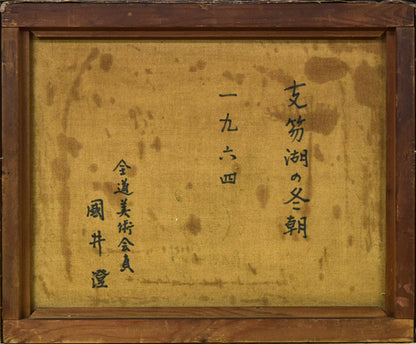 支笏湖の冬朝
一九六四
全道美術会員
國井澄